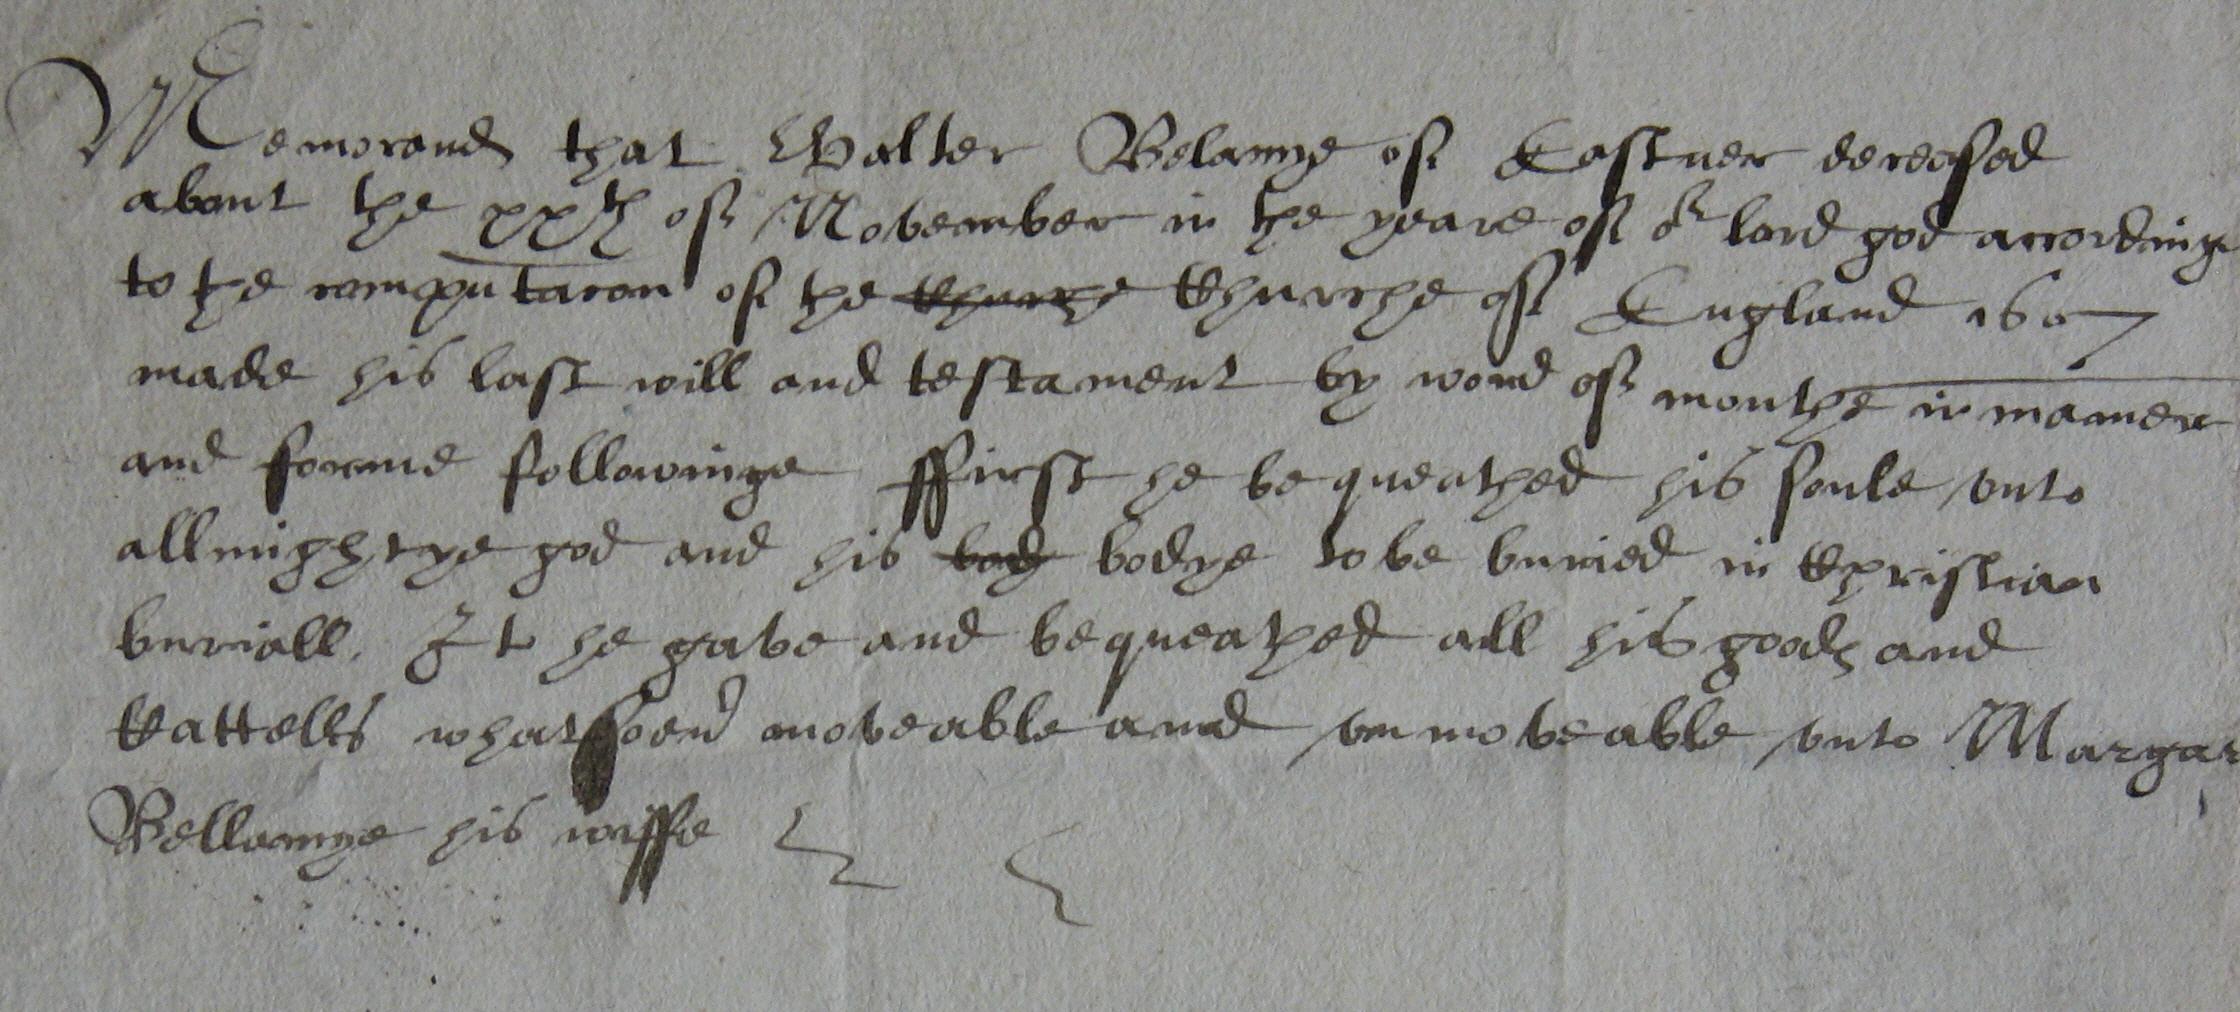 Memorand that Walter Belamye of Eastner deceased
about the xxth of November in the yeare of or lord god accordinge
to the computacon of the Churche Churche of England 1607
made his last will and testament by word of mouthe in manner
and forme followinge ffirst he bequeathed his soule unto
allmightye god and his body bodye to be buried in Christian
buriall. It he gave and bequeathed all his goods and
Cattells whatsoever moveable and unmoveable unto Margar
Bellamye his wiffe